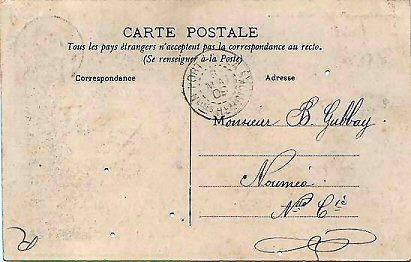 CARTE POSTALE
Tous les pays étrangers n'acceptent pas la correspondance au recto.
(Se renseigner à la Poste)
Correspondance
Adresse
MAI
05
Monsieur B. Gubbay
Nouméa
Nlle Cie